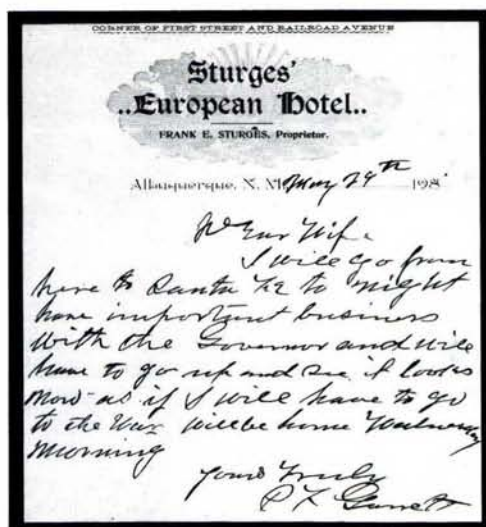 CORNER OF FIRST STREET AND RAILROAD AVENUE
Sturges'
..European Hotel..
FRANK E. STURGES, Proprietor.
Albuquerque, N. M. May 29th 1898
Dear Wife
I will go from
here to Santa Fe to night
have important business
with the Governor and will
have to go up and see it looks
now as if I will have to go
to the War will be home Wednesday
morning
Yours Truly
P F Garrett